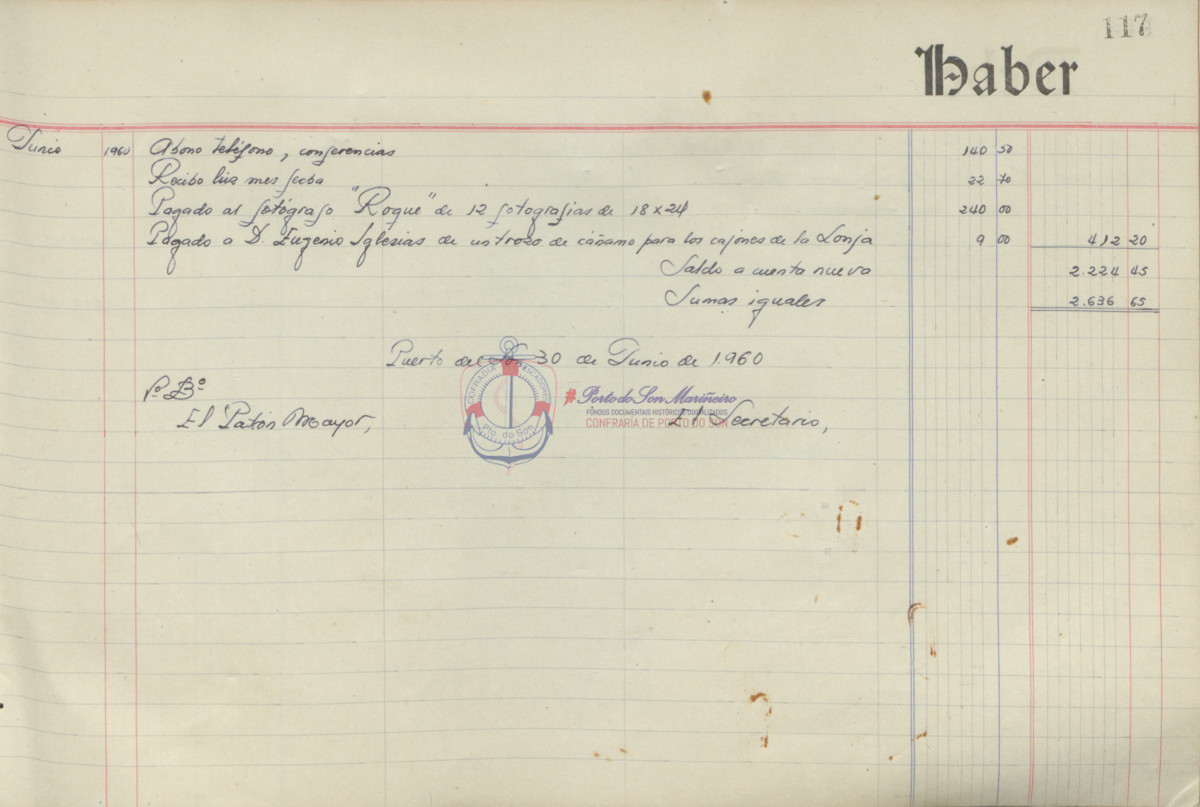 117
Haber
Junio 1960 Abono teléfono, conferencias 140 50
Recibo luz mes fecha 22 70
Pagado al fotógrafo "Roque" de 12 fotografias de 18 x 24 240 00
Pagado a D. Eugenio Iglesias de un trozo de cáñamo para los cajones de la Lonja 9 00 412 20
Saldo a cuenta nueva 2.224 45
Sumas iguales 2.636 65
Puerto del Son 30 de Junio de 1.960
Vº Bº
El Patón Mayor, El Secretario,
COFRADIA PESCADORES
Pto. do Son
#Porto do Son Mariñeiro
FONDOS DOCUMENTAIS HISTÓRICOS DIXITALIZADOS
CONFRARÍA DE PORTO DO SON